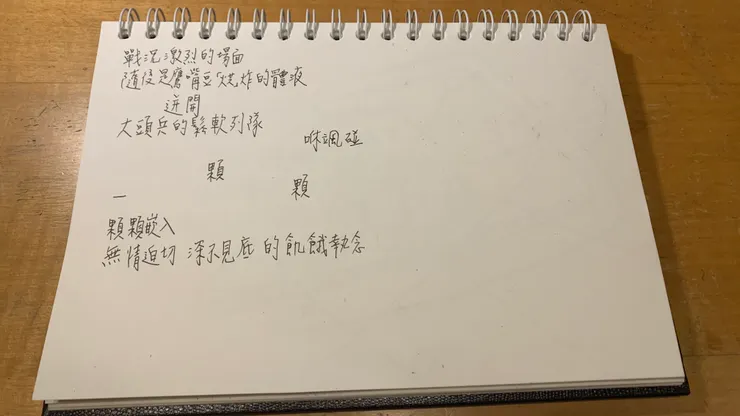 戰況激烈的場面
隨後是鷹嘴豆烹炸的體液
迸開
大頭兵的鬆軟列隊
咻諷碰
顆
一 顆
顆顆嵌入
無情迫切 深不見底 的飢餓執念